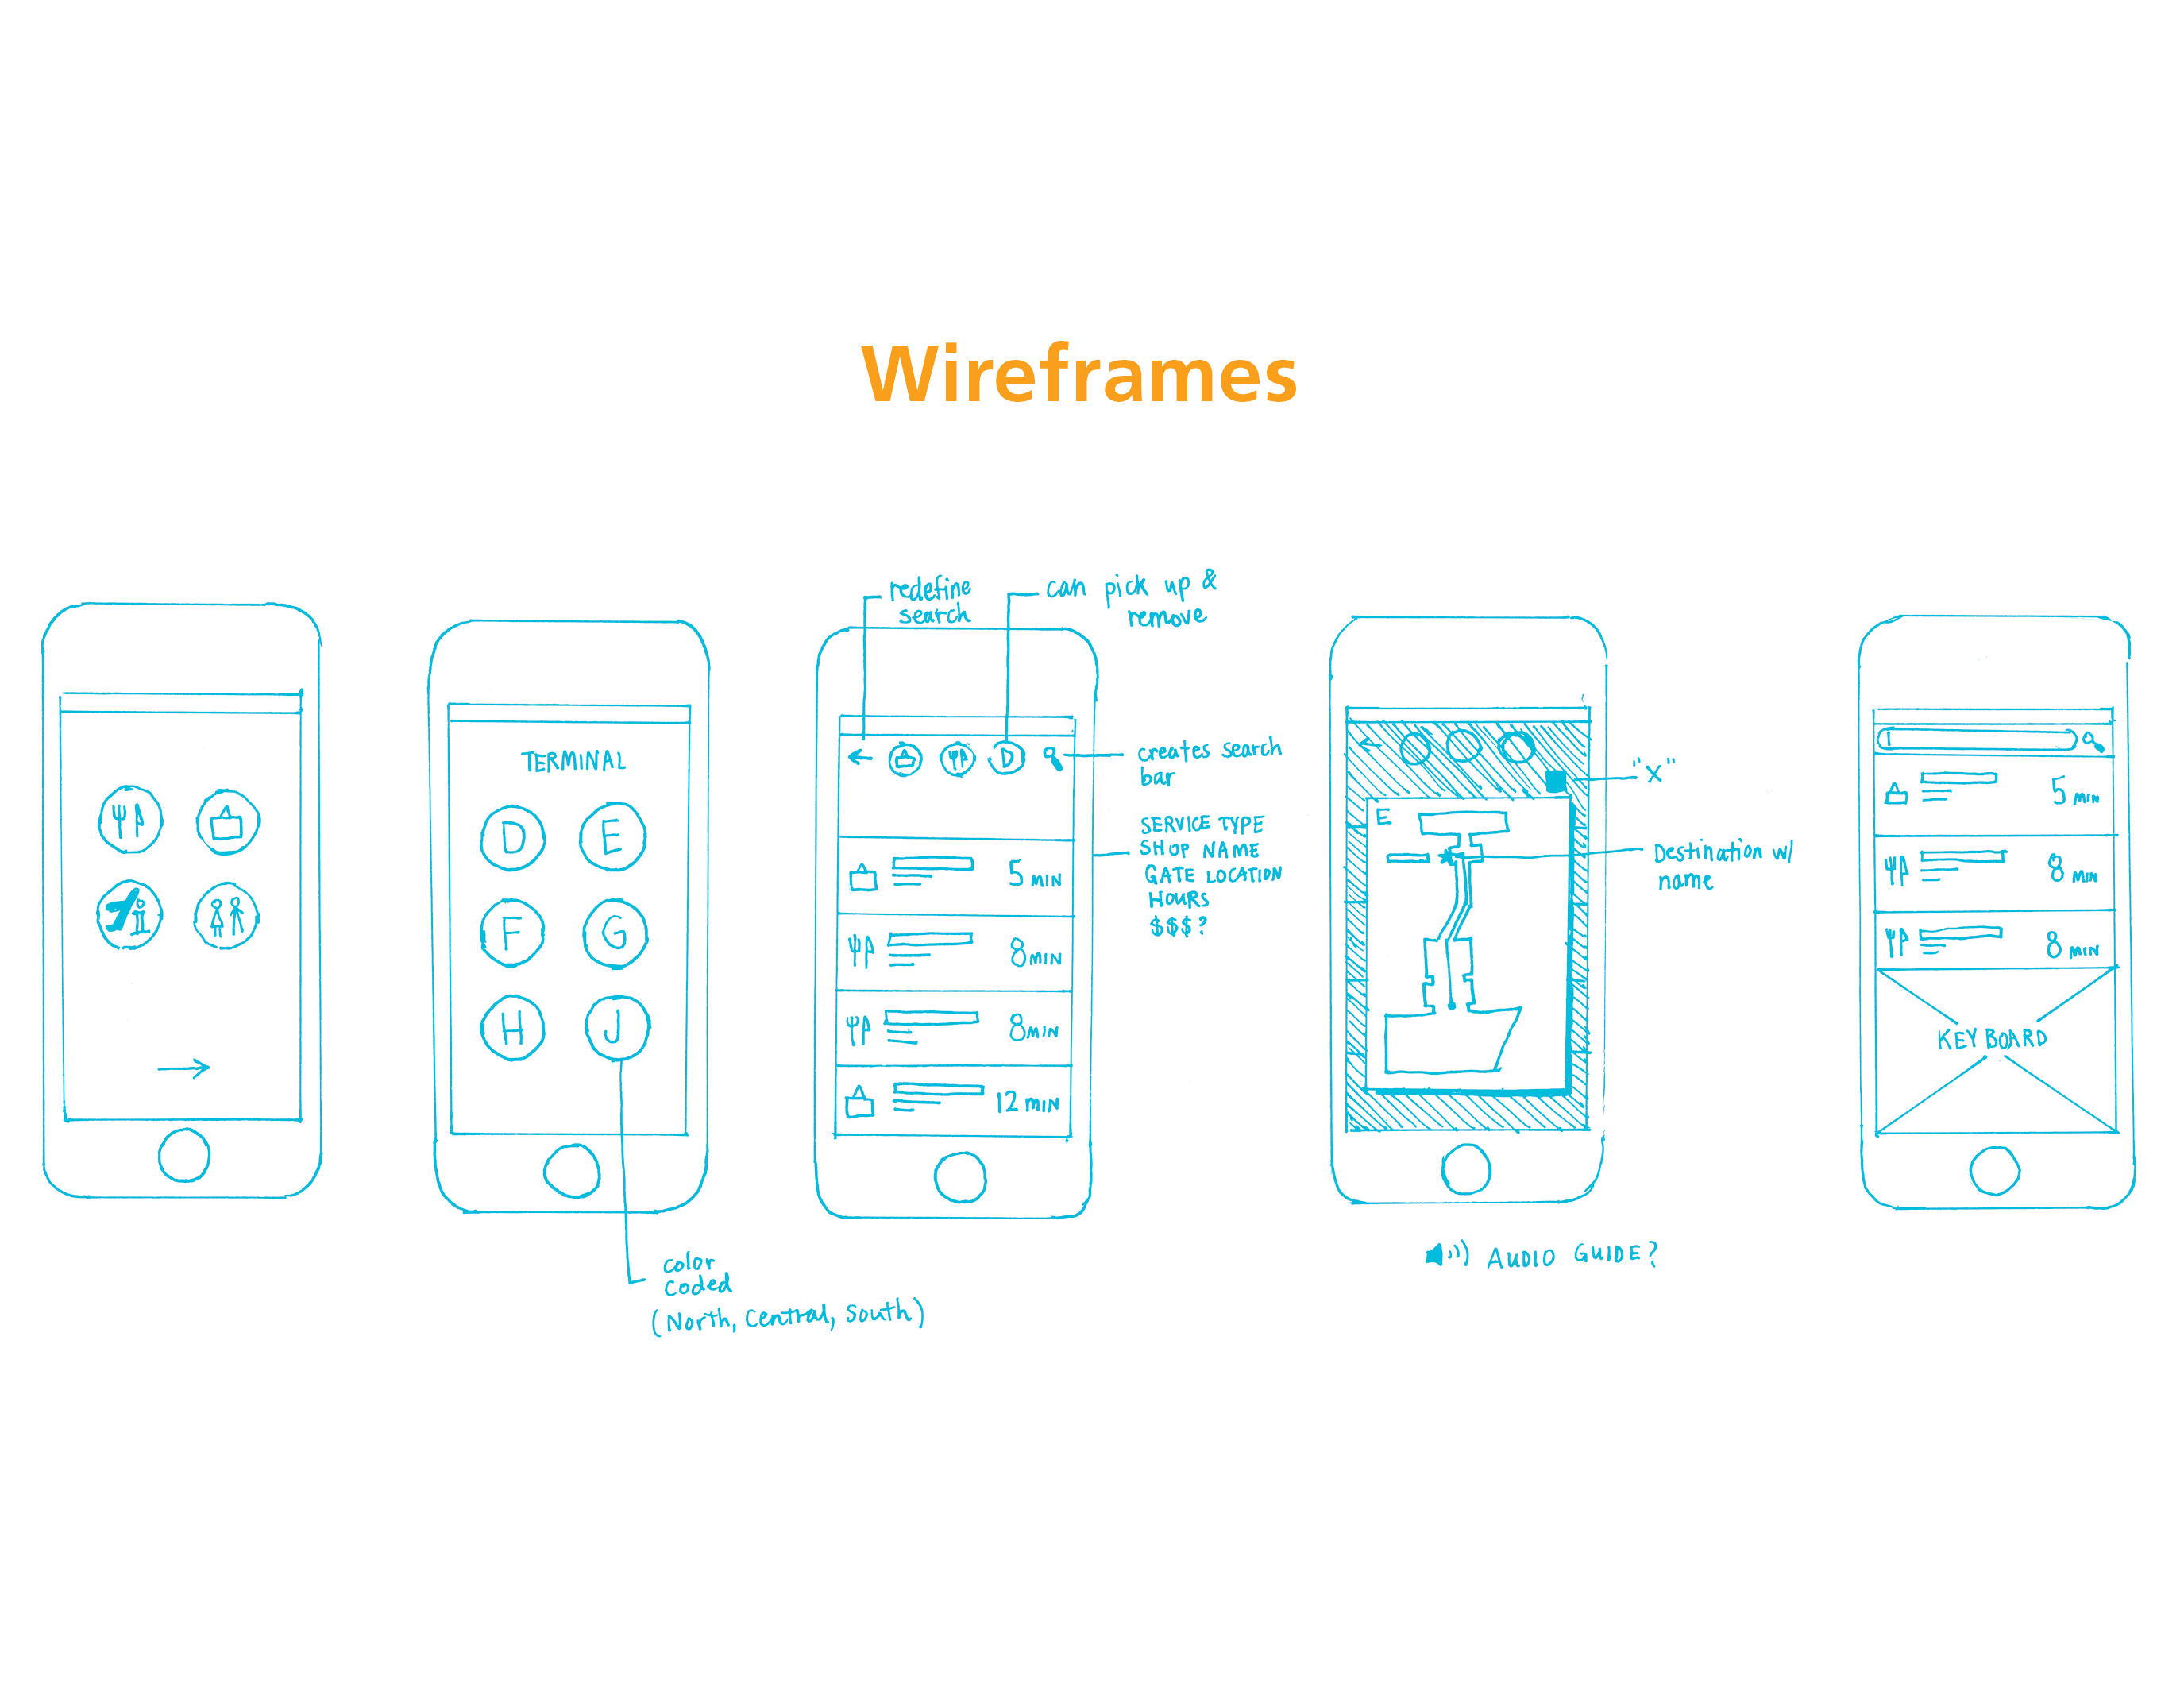 Wireframes
TERMINAL
D
E
F
G
H
J
color
coded
(North, Central, South)
redefine
search
can pick up &
remove
D
creates search
bar
SERVICE TYPE
SHOP NAME
GATE LOCATION
HOURS
$$$?
5 MIN
8 MIN
8 MIN
12 MIN
"X"
E
Destination w/
name
AUDIO GUIDE?
5 MIN
8 MIN
8 MIN
KEYBOARD